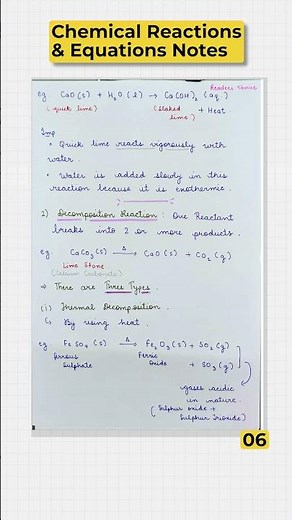 Chemical Reactions
& Equations Notes
Readers Venue
eg CaO (s) + H₂O (l) → Ca(OH)₂ (aq)
(quick lime) (slaked lime) + Heat
Imp
• Quick lime reacts vigorously with
water.
• Water is added slowly in this
reaction because it is exothermic.
2) Decomposition Reaction : One Reactant
breaks into 2 or more products.
eg: CaCO₃ (s) Δ→ CaO (s) + CO₂ (g)
Lime Stone
(Calcium Carbonate)
⇒ There are Three Types.
(i) Thermal Decomposition.
↳ By using heat.
eg: FeSO₄ (s) Δ→ Fe₂O₃ (s) + SO₂ (g)
Ferrous Sulphate Ferric Oxide + SO₃ (g)
gases acidic
in nature.
(Sulphur oxide +
Sulphur Trioxide)
06